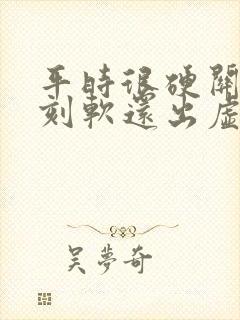 平時很硬關
刻軟還出虛
吴夢奇